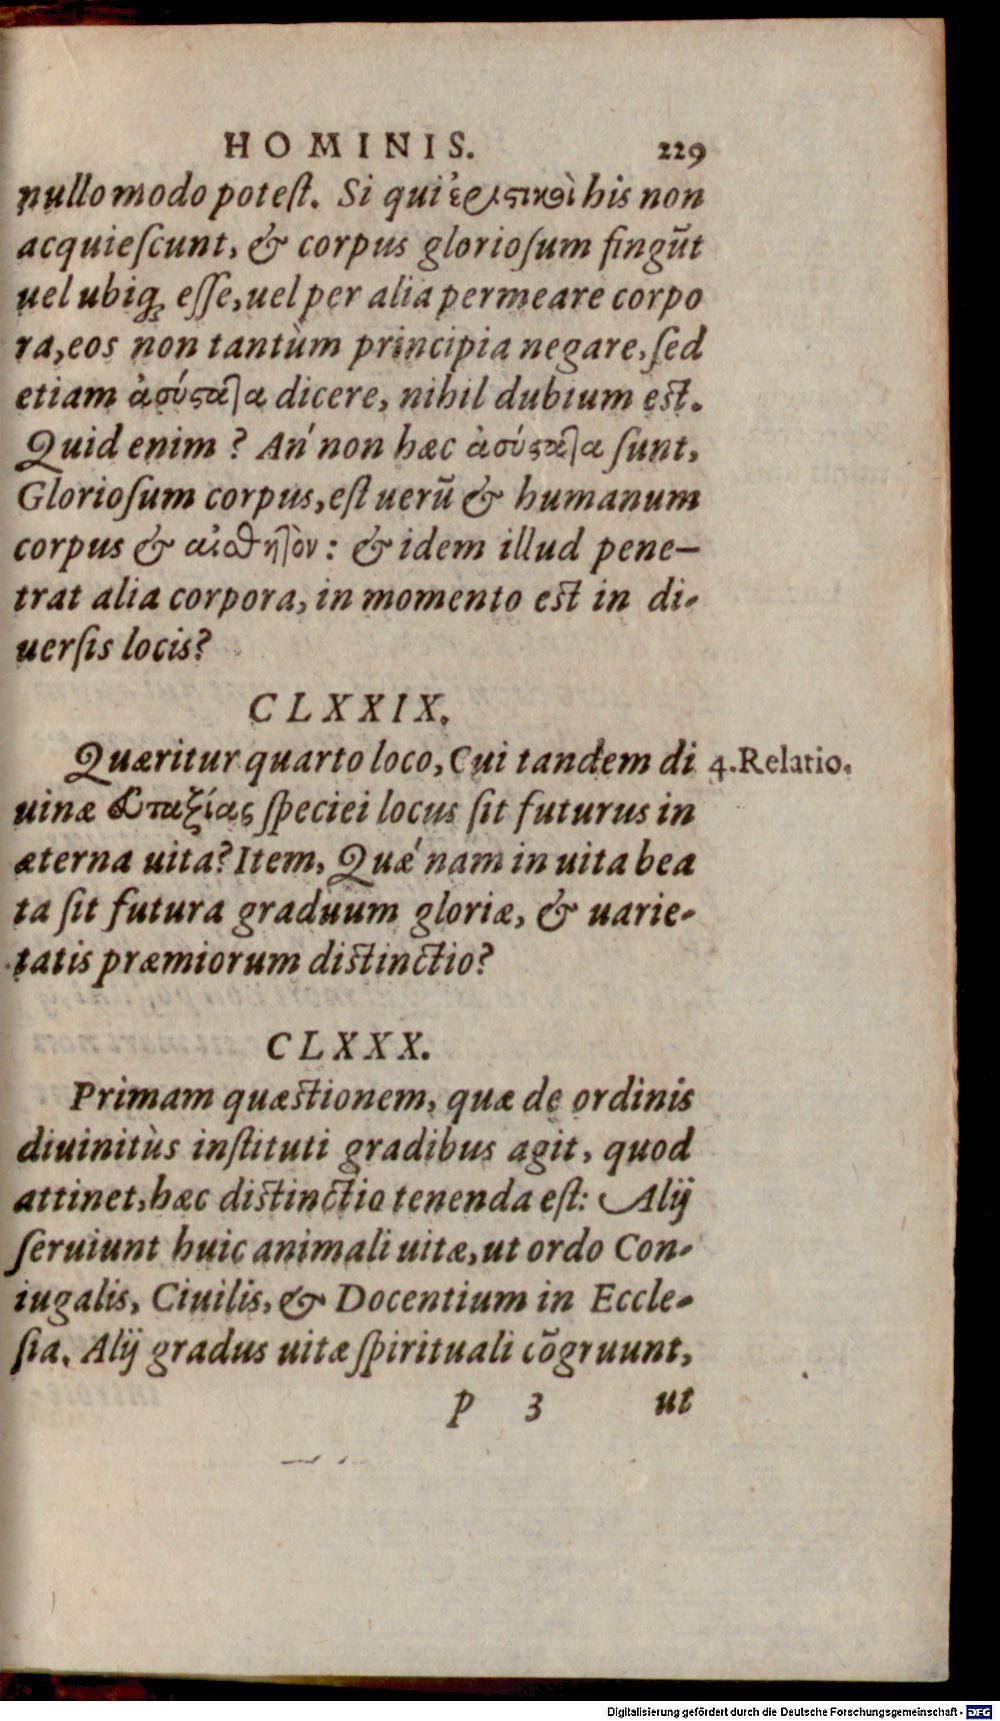 HOMINIS. 229
nullo modo poteſt. Si qui ἐριστικοὶ his non
acquieſcunt, & corpus glorioſum fingūt
uel ubiq; eſſe, uel per alia permeare corpo
ra, eos non tantùm principia negare, ſed
etiam ἀσύστατα dicere, nihil dubium est.
Quid enim? An' non hæc ἀσύστατα ſunt,
Glorioſum corpus, eſt uerū & humanum
corpus & αἰσθητὸν: & idem illud pene-
trat alia corpora, in momento est in di-
uerſis locis?
CLXXIX.
Quæritur quarto loco, Cui tandem di
4. Relatio.
uinæ εὐταξίας ſpeciei locus ſit futurus in
æterna uita? Item, Quæ' nam in uita bea
ta ſit futura graduum gloriæ, & uarie-
tatis præmiorum distinctio?
CLXXX.
Primam quæstionem, quæ de ordinis
diuinitùs inſtituti gradibus agit, quod
attinet, hæc distinctio tenenda eſt: Alij
ſeruiunt huic animali uitæ, ut ordo Con-
iugalis, Ciuilis, & Docentium in Eccle-
ſia. Alij gradus uitæ ſpirituali cōgruunt,
p 3 ut
Digitalisierung gefördert durch die Deutsche Forschungsgemeinschaft - DFG